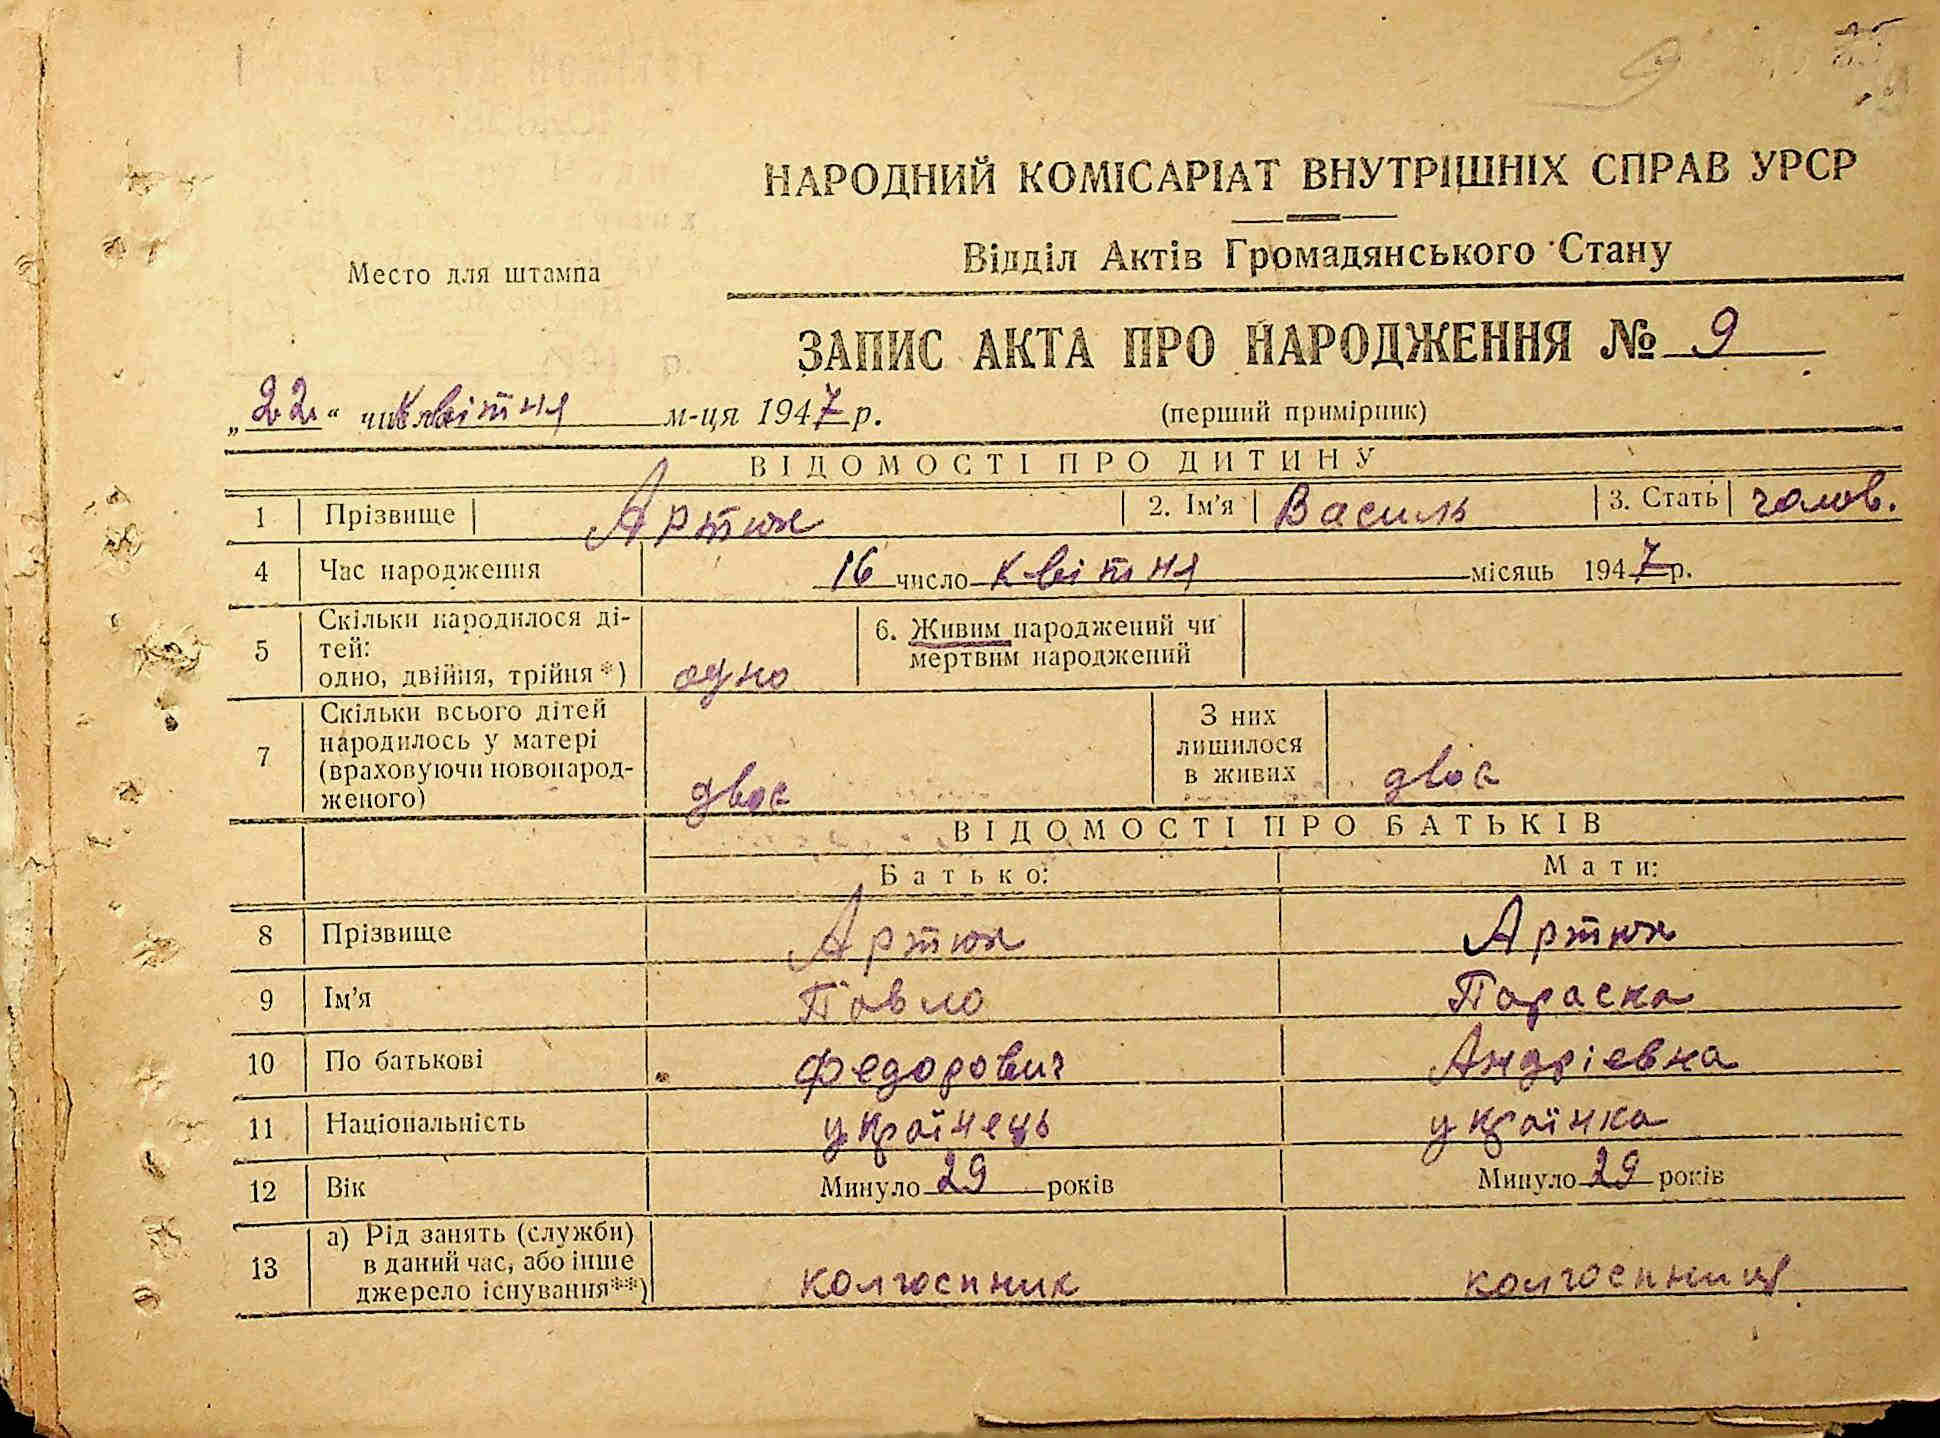 НАРОДНИЙ КОМІСАРІАТ ВНУТРІШНІХ СПРАВ УРСР
Відділ Актів Громадянського Стану
Место для штампа
ЗАПИС АКТА ПРО НАРОДЖЕННЯ № 9
„22“ квітня м-ця 1947 р.
(перший примірник)
ВІДОМОСТІ ПРО ДИТИНУ
1 Прізвище Артюх 2. Ім'я Василь 3. Стать чолов.
4 Час народження 16 число квітня місяць 1947 р.
5 Скільки народилося ді-
тей:
одно, двійня, трійня*) одно
6. Живим народжений чи
мертвим народжений
7 Скільки всього дітей
народилось у матері
(враховуючи новонарод-
женого) двоє
З них
лишилося
в живих двоє
ВІДОМОСТІ ПРО БАТЬКІВ
Батько: Мати:
8 Прізвище Артюх Артюх
9 Ім'я Павло Параска
10 По батькові Федорович Андріевна
11 Національність українець українка
12 Вік Минуло 29 років Минуло 29 років
13 а) Рід занять (служби)
в даний час, або інше
джерело існування**) колгоспник колгоспниця